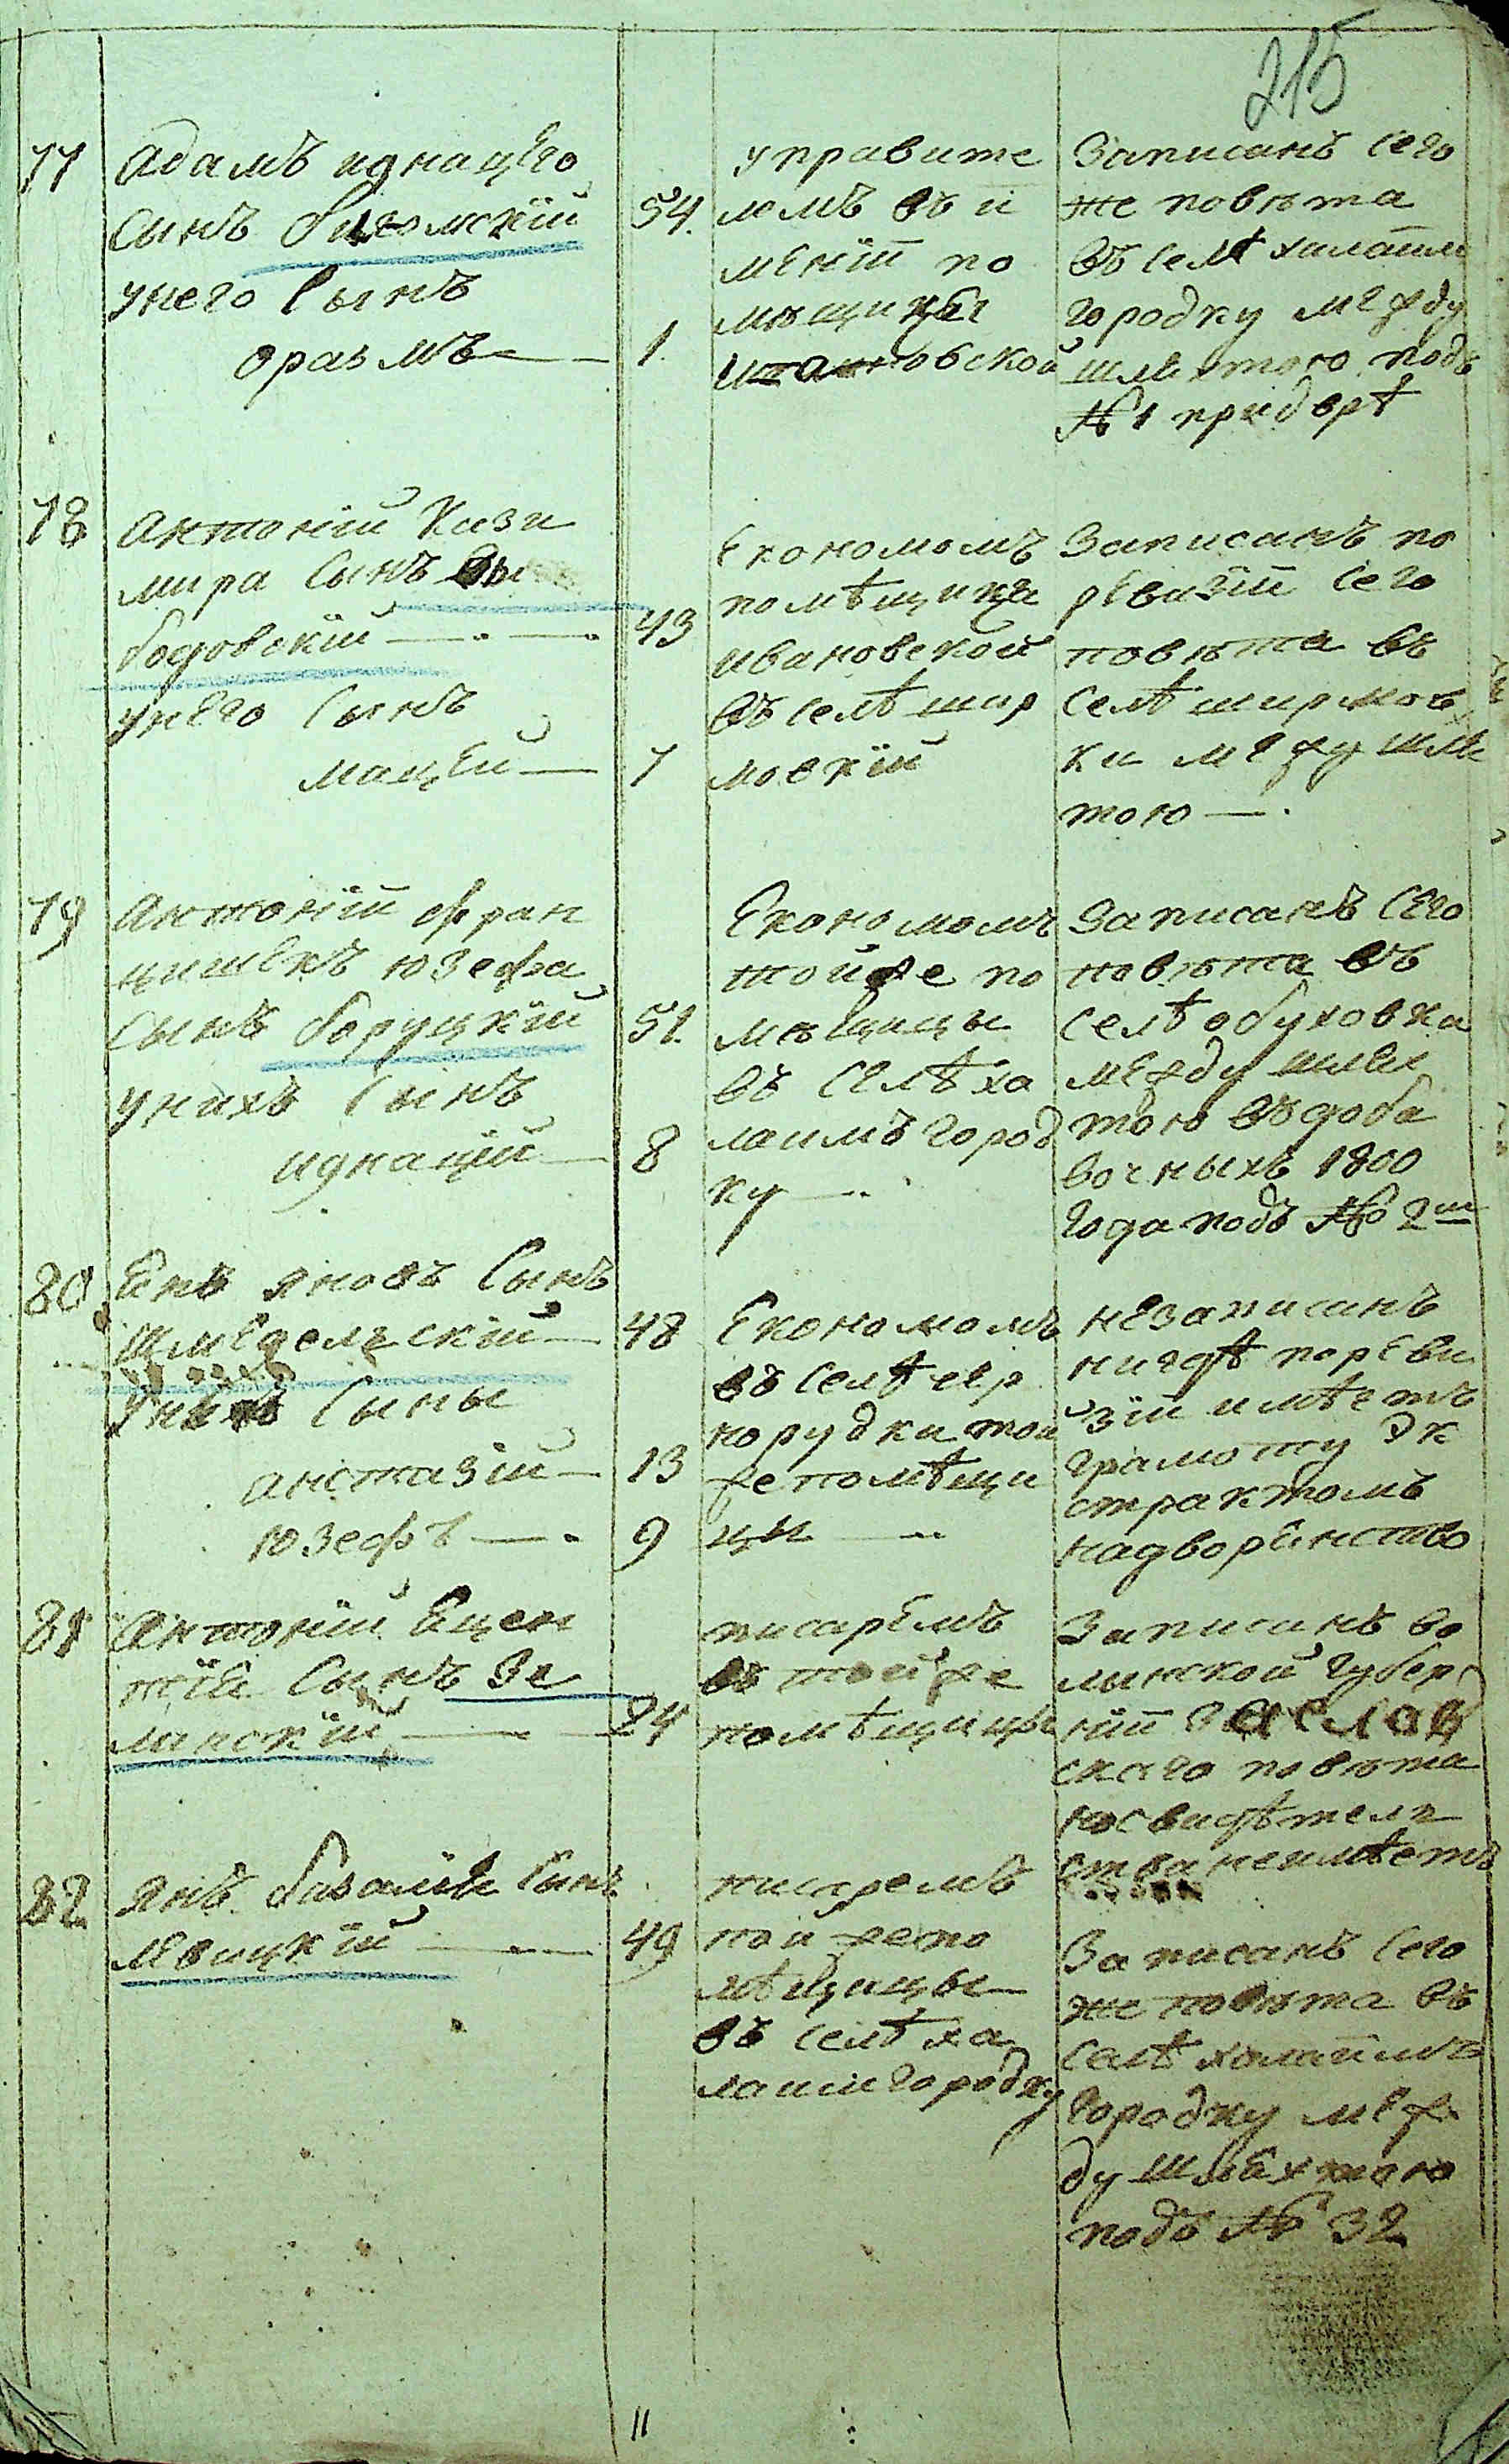 215
77
Адамъ игнацего
сынъ
унего сынъ
54.
1.
управите
лемъ въ и
менїи по
мѣщицы
Записанъ сего
же повѣта
въ селѣ халаим
городку между
шляхтою подъ
№ 1 придврѣ
78
Антонїй Кази
мира сынъ вы
бодовскїй
унего сынъ
мацей
43
7
Економомъ
помѣщика
ивановской
въ селѣ шир
мовкїй
Записанъ по
ревизїи сего
повѣта въ
селѣ ширмов
ки между шлях
тою
79
Антонїй фран
цишекъ юзефа
сынъ боруцкїй
унихъ сынъ
игнацїй
51.
8
Економомъ
тойже по
мѣщицы
въ селѣ ха
лаимъ город
ку
Записанъ сего
повѣта въ
селѣ обуховка
между шлях
тою въ доба
вочныхъ 1800
года подъ № 2м
80
Янъ яновъ сынъ
сыны
юзефъ
48
13
9
Економомъ
въ селѣ
той
же помѣщи
цы
незаписанъ
нигдѣ поревы
зїи имѣетъ
грамоту эк
страктомъ
надворянство
81
Антонїй
сынъ Зе
линскїй
24
писаремъ
въ тойже
помѣщицы
Записанъ во
линской губер
нїи Заслав
скаго повѣта
но свидѣтель
ства неимѣетъ
82
Янъ базилїя сынъ
левицкїй
49
писаремъ
той же по
мѣщицы
въ селѣ ха
лаимгородку
Записанъ сего
же повѣта въ
селѣ халаимъ
городку меж
ду шляхтою
подъ № 32
11